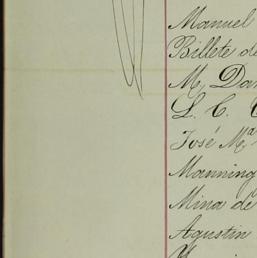 Manuel
Billete de
M. Da
L. C. C
José Mª
Manning
Mina de
Agustin